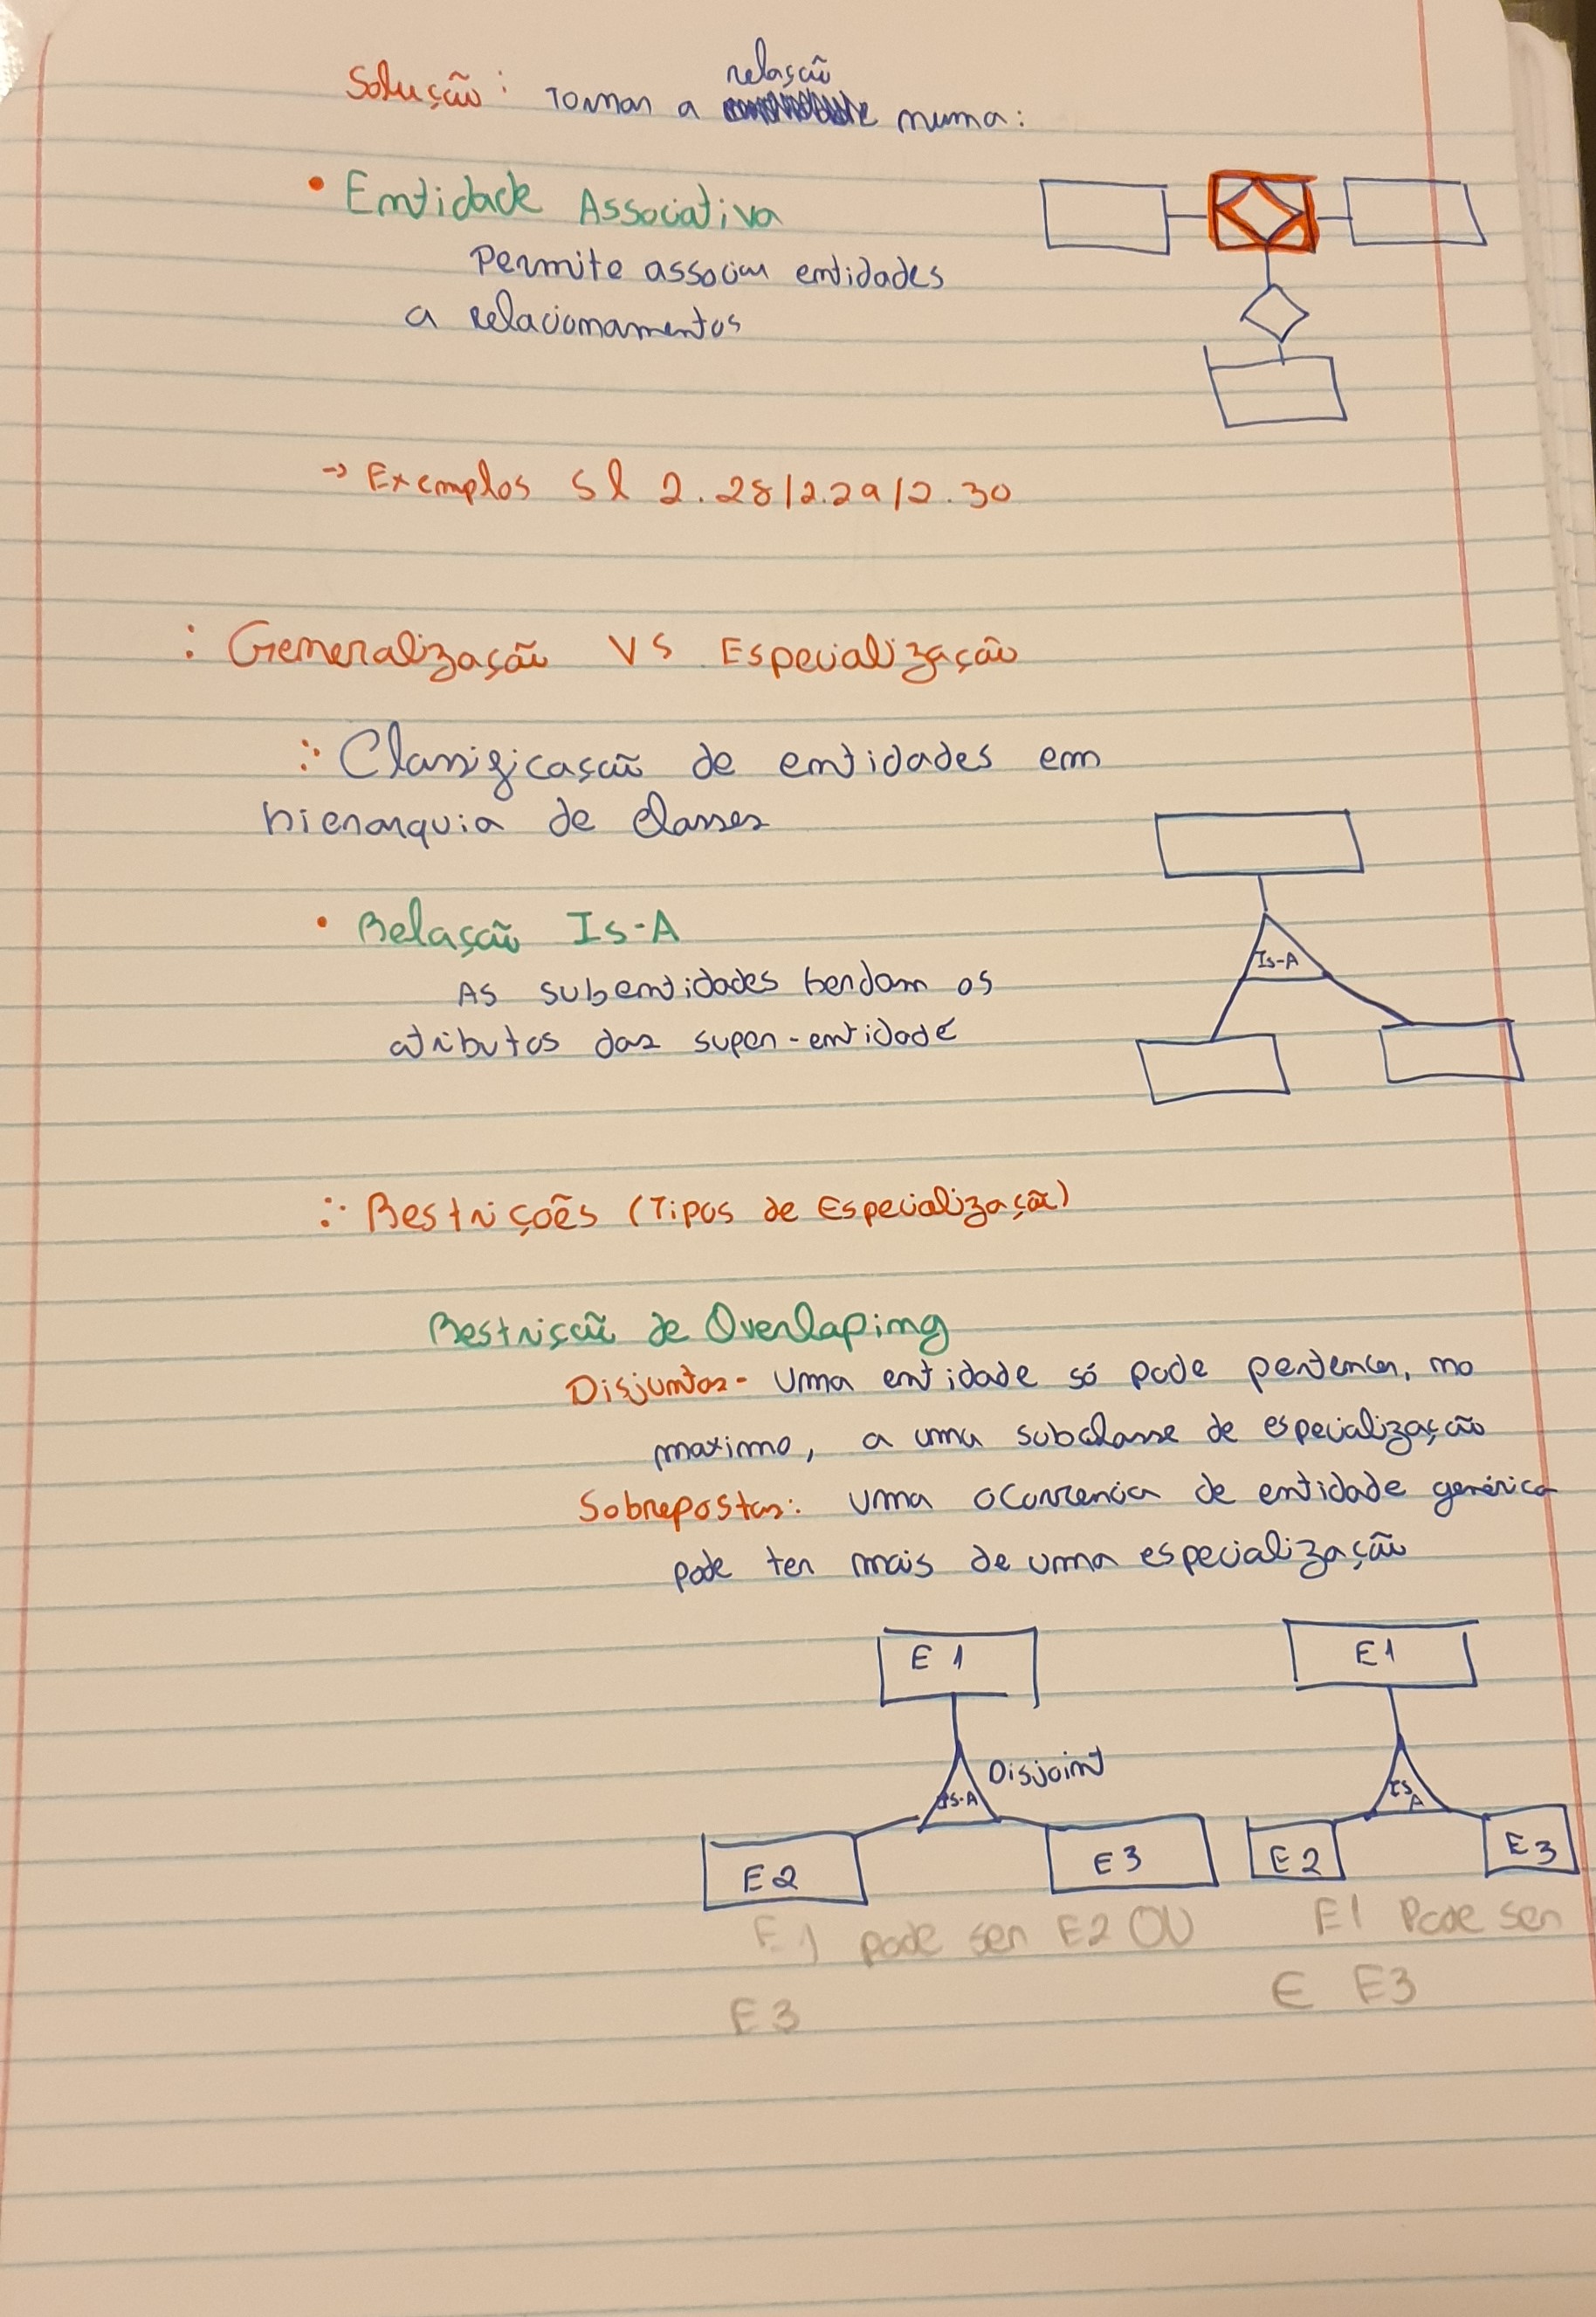 Solução: Tornar a relação numa:
• Entidade Associativa
Permite associar entidades
a relacionamentos
→ Exemplos sl 2.28/2.29/2.30
: Generalização VS Especialização
∴ Classificação de entidades em
hierarquia de classes
• Relação Is-A
As subentidades herdam os
atributos das super-entidade
Is-A
∴ Restrições (Tipos de Especialização)
Restrição de Overlaping
Disjuntas- Uma entidade só pode pertencer, no
maximo, a uma subclasse de especialização
Sobrepostas: uma ocorrencia de entidade genérica
pode ter mais de uma especialização
E1
E1
Disjoint
Is-A
Is A
E2
E3
E2
E3
E1 pode ser E2 OU
E3
E1 Pode ser
E E3